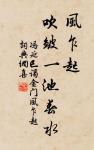 風乍起
吹皺一池春水
馮延巳謁金門風乍起
詞典網喜